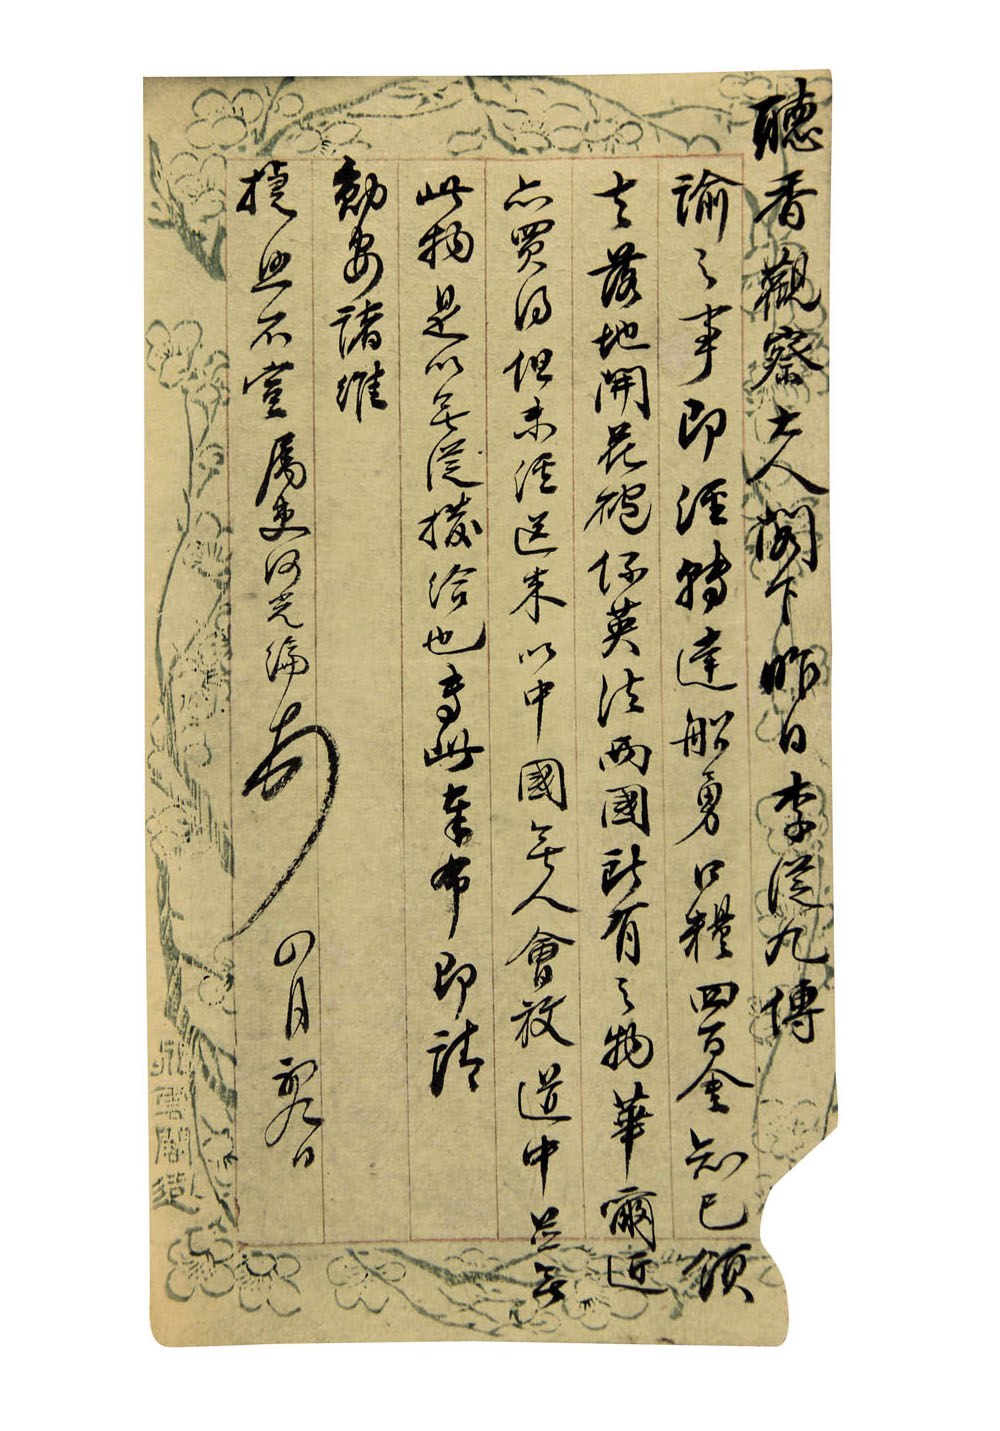 聽香觀察大人閣下昨日李從九傳
諭之事即經轉達船勇口糧四百金知已領
去落地開花砲係英法两國所有之物華爾近
亦買得但未經送来以中國無人會放道中並無
此物是以無從撥給也專此奉布即請
勛安諸維
捷照不宣屬吏何光綸頓
四月初九日